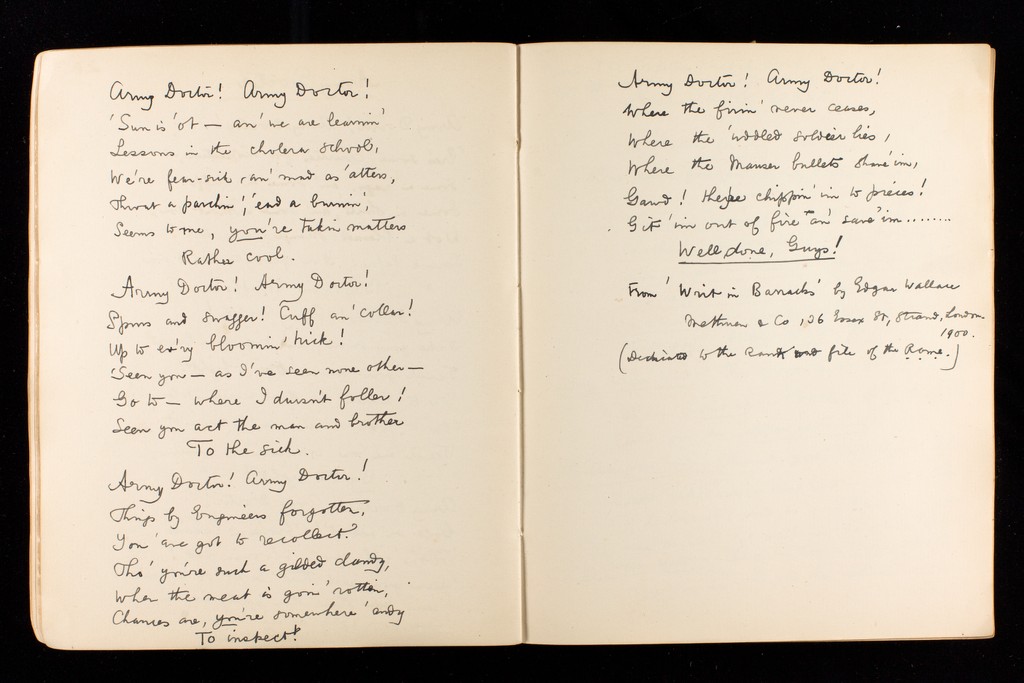 Army Doctor! Army Doctor!
'Sun is 'ot — an' we are learnin'
Lessons in the cholera school,
We're fear-sick, an' mad as 'atters,
Throat a parchin', 'ead a burnin',
Seems to me, you're takin matters
Rather cool.
Army Doctor! Army Doctor!
Spurs and swagger! Cuff an' collar!
Up to ev'ry bloomin' trick!
'Seen you — as I've seen none other —
Go to — where I dursn't foller!
Seen you act the man and brother
To the sick.
Army Doctor! Army Doctor!
Things by Engineers forgotten,
You 'ave got to recollect.
Tho' you're such a gilded dandy,
When the meat is goin' rotten,
Chances are, you're somewhere 'andy
To inspect!
Army Doctor! Army Doctor!
Where the firin' never ceases,
Where the 'uddled soldier lies,
Where the Mauser bullets shave 'im,
Gawd! they're chippin' 'im to pieces!
Git 'im out of fire an' save 'im........
Well done, Guys!
From 'Writ in Barracks' by Edgar Wallace
Methuen & Co, 36 Essex St, Strand, London.
1900.
(Dedicated to the rank and file of the R.A.M.C.)